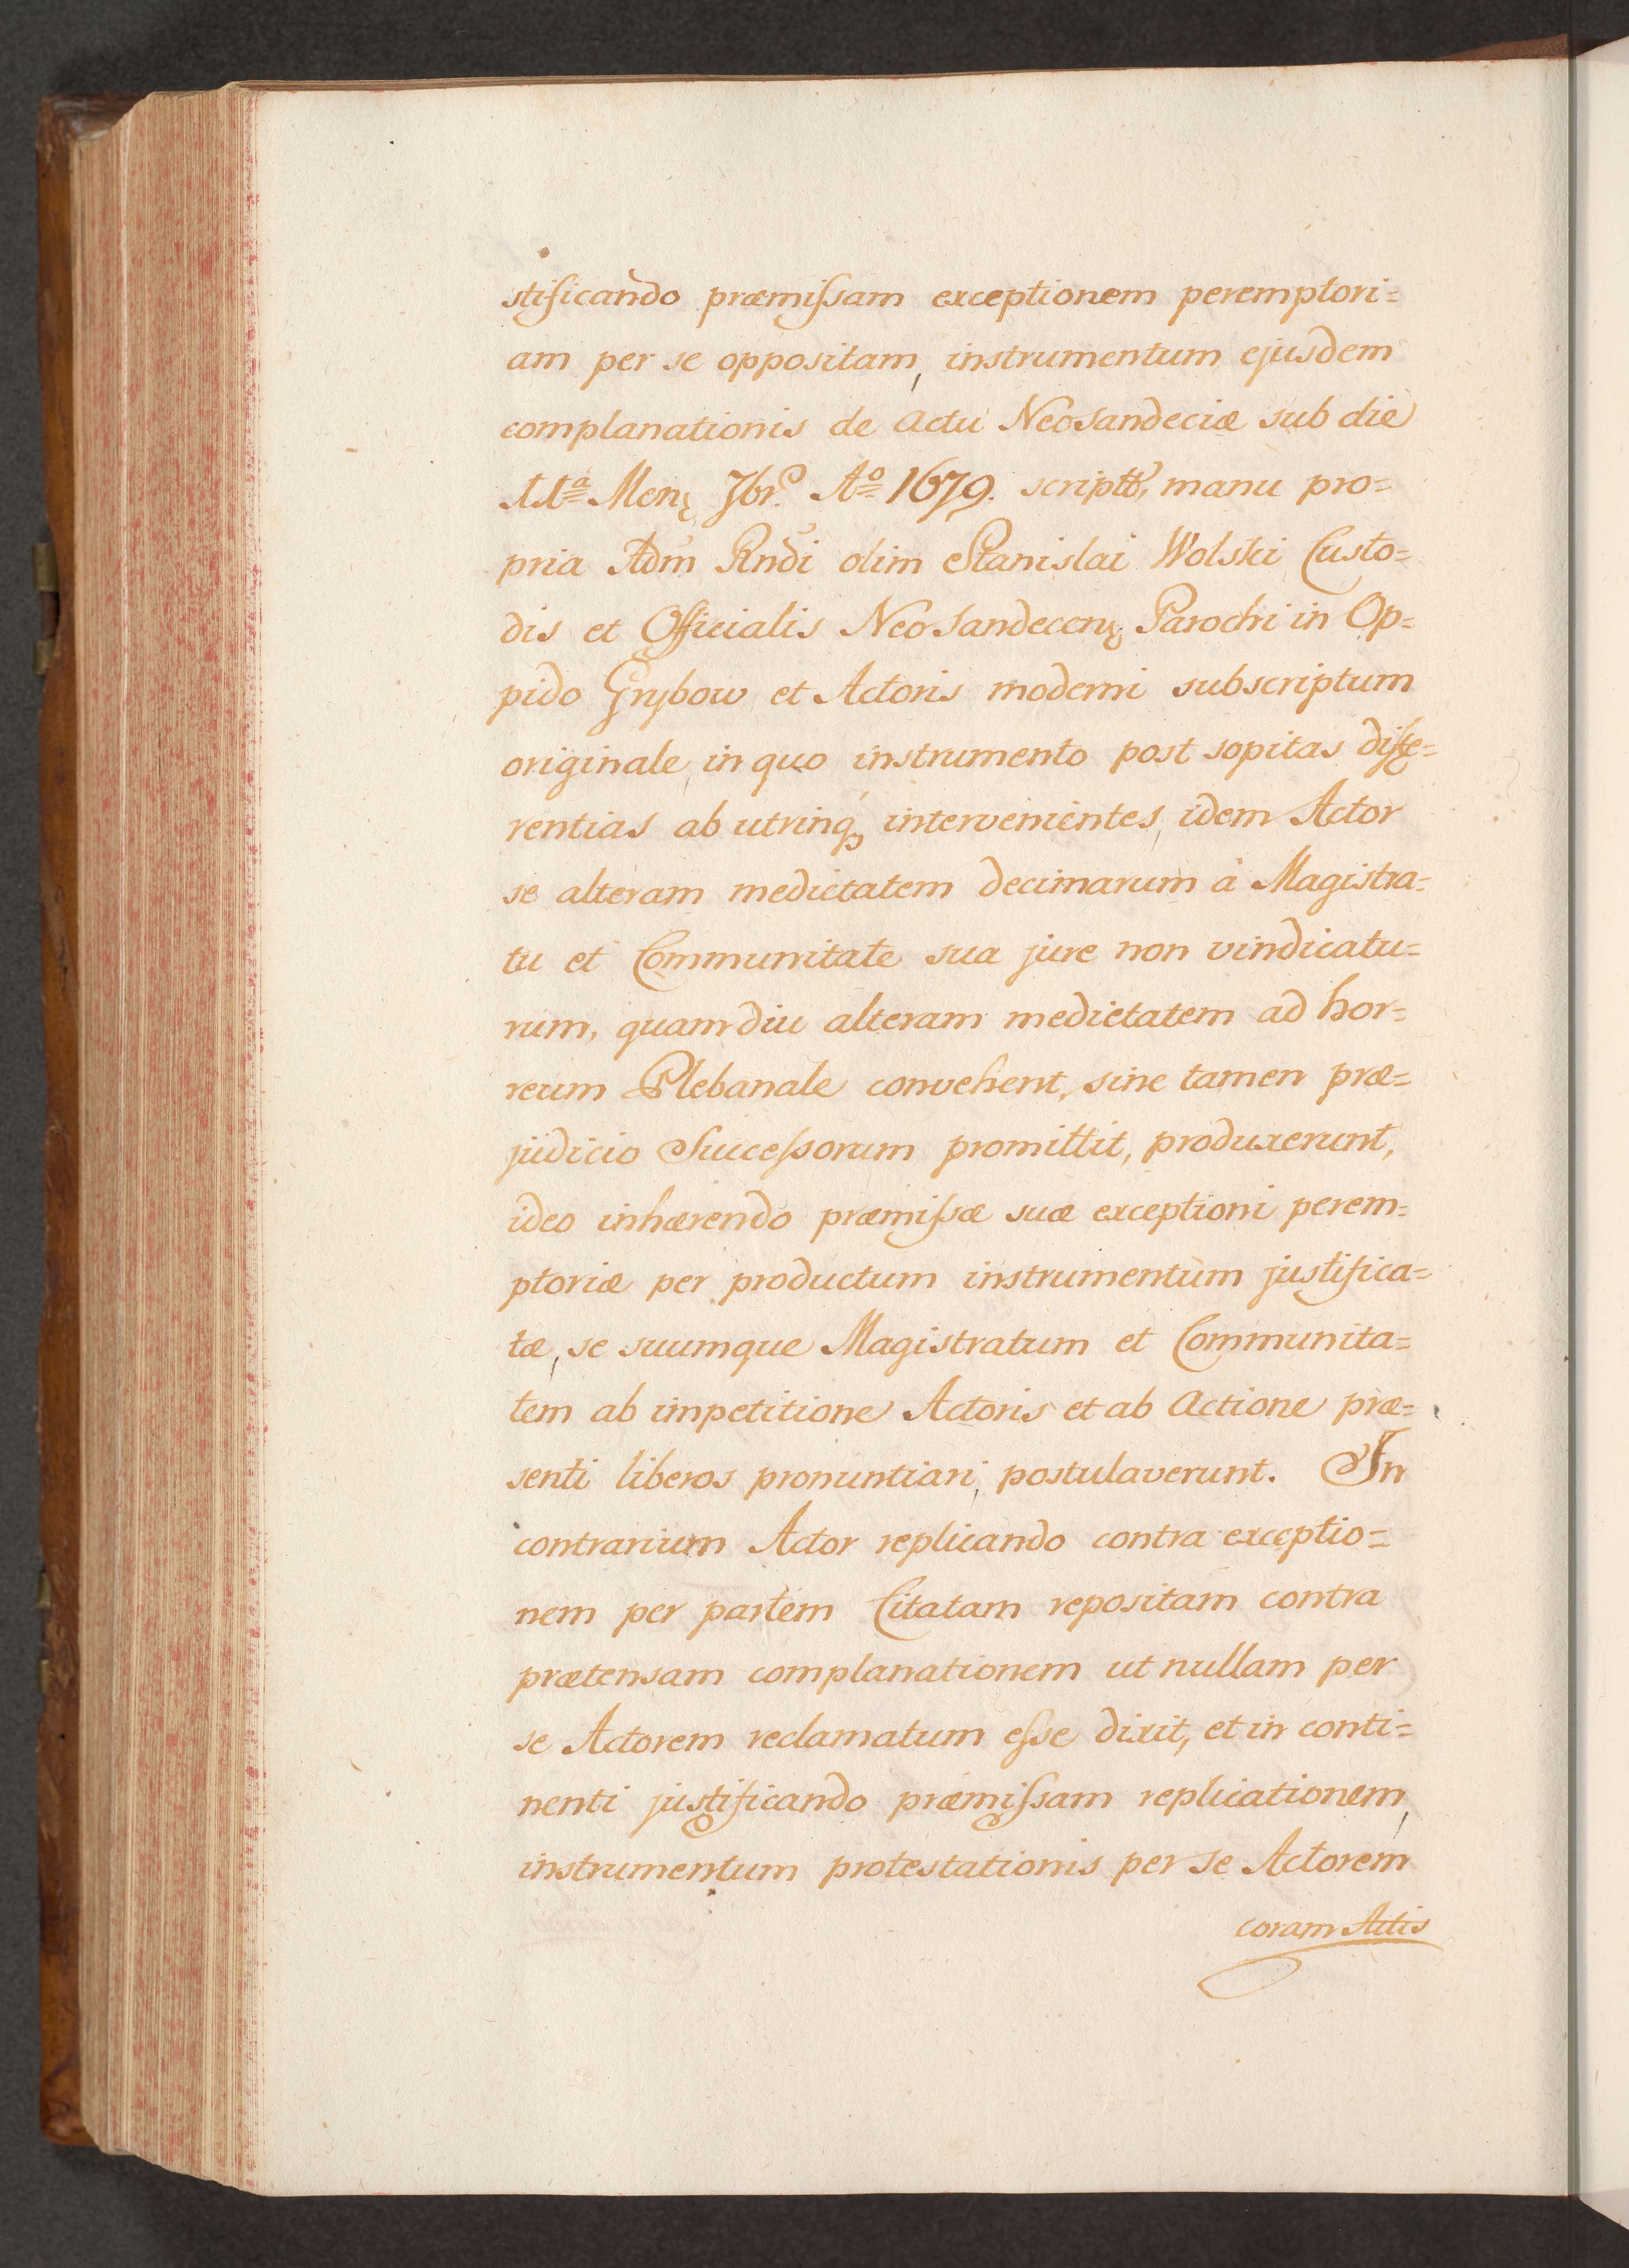 stificando præmissam exceptionem peremptori=
am per se oppositam, instrumentum ejusdem
complanationis de actu Neosandeciæ sub die
11ª Menς 7brꝭ Aº 1679. scriptũ, manu pro=
pria Adm̃ Rñdi olim Stanislai Wolski Custo=
dis et Officialis Neosandecenς Parochi in Op=
pido Grybow et Actoris moderni subscriptum
originale, in quo instrumento post sopitas diffe=
rentias ab utrinqꝫ intervenientes, idem Actor
se alteram medietatem decimarum à Magistra=
tu et Communitate sua jure non vindicatu=
rum, quamdiu alteram medietatem ad hor=
reum Plebanale convehent, sine tamen præ=
judicio Successorum promittit, produxerunt,
ideo inhærendo præmissæ suæ exceptioni perem=
ptoriæ per productum instrumentum justifica=
tæ, se suumque Magistratum et Communita=
tem ab impetitione Actoris et ab actione præ=
senti liberos pronuntiari, postulaverunt. In
contrarium Actor replicando contra exceptio=
nem per partem Citatam repositam contra
prætensam complanationem ut nullam per
se Actorem reclamatum esse dixit, et in conti=
nenti justificando præmissam replicationem,
instrumentum protestationis per se Actorem
coram Actis